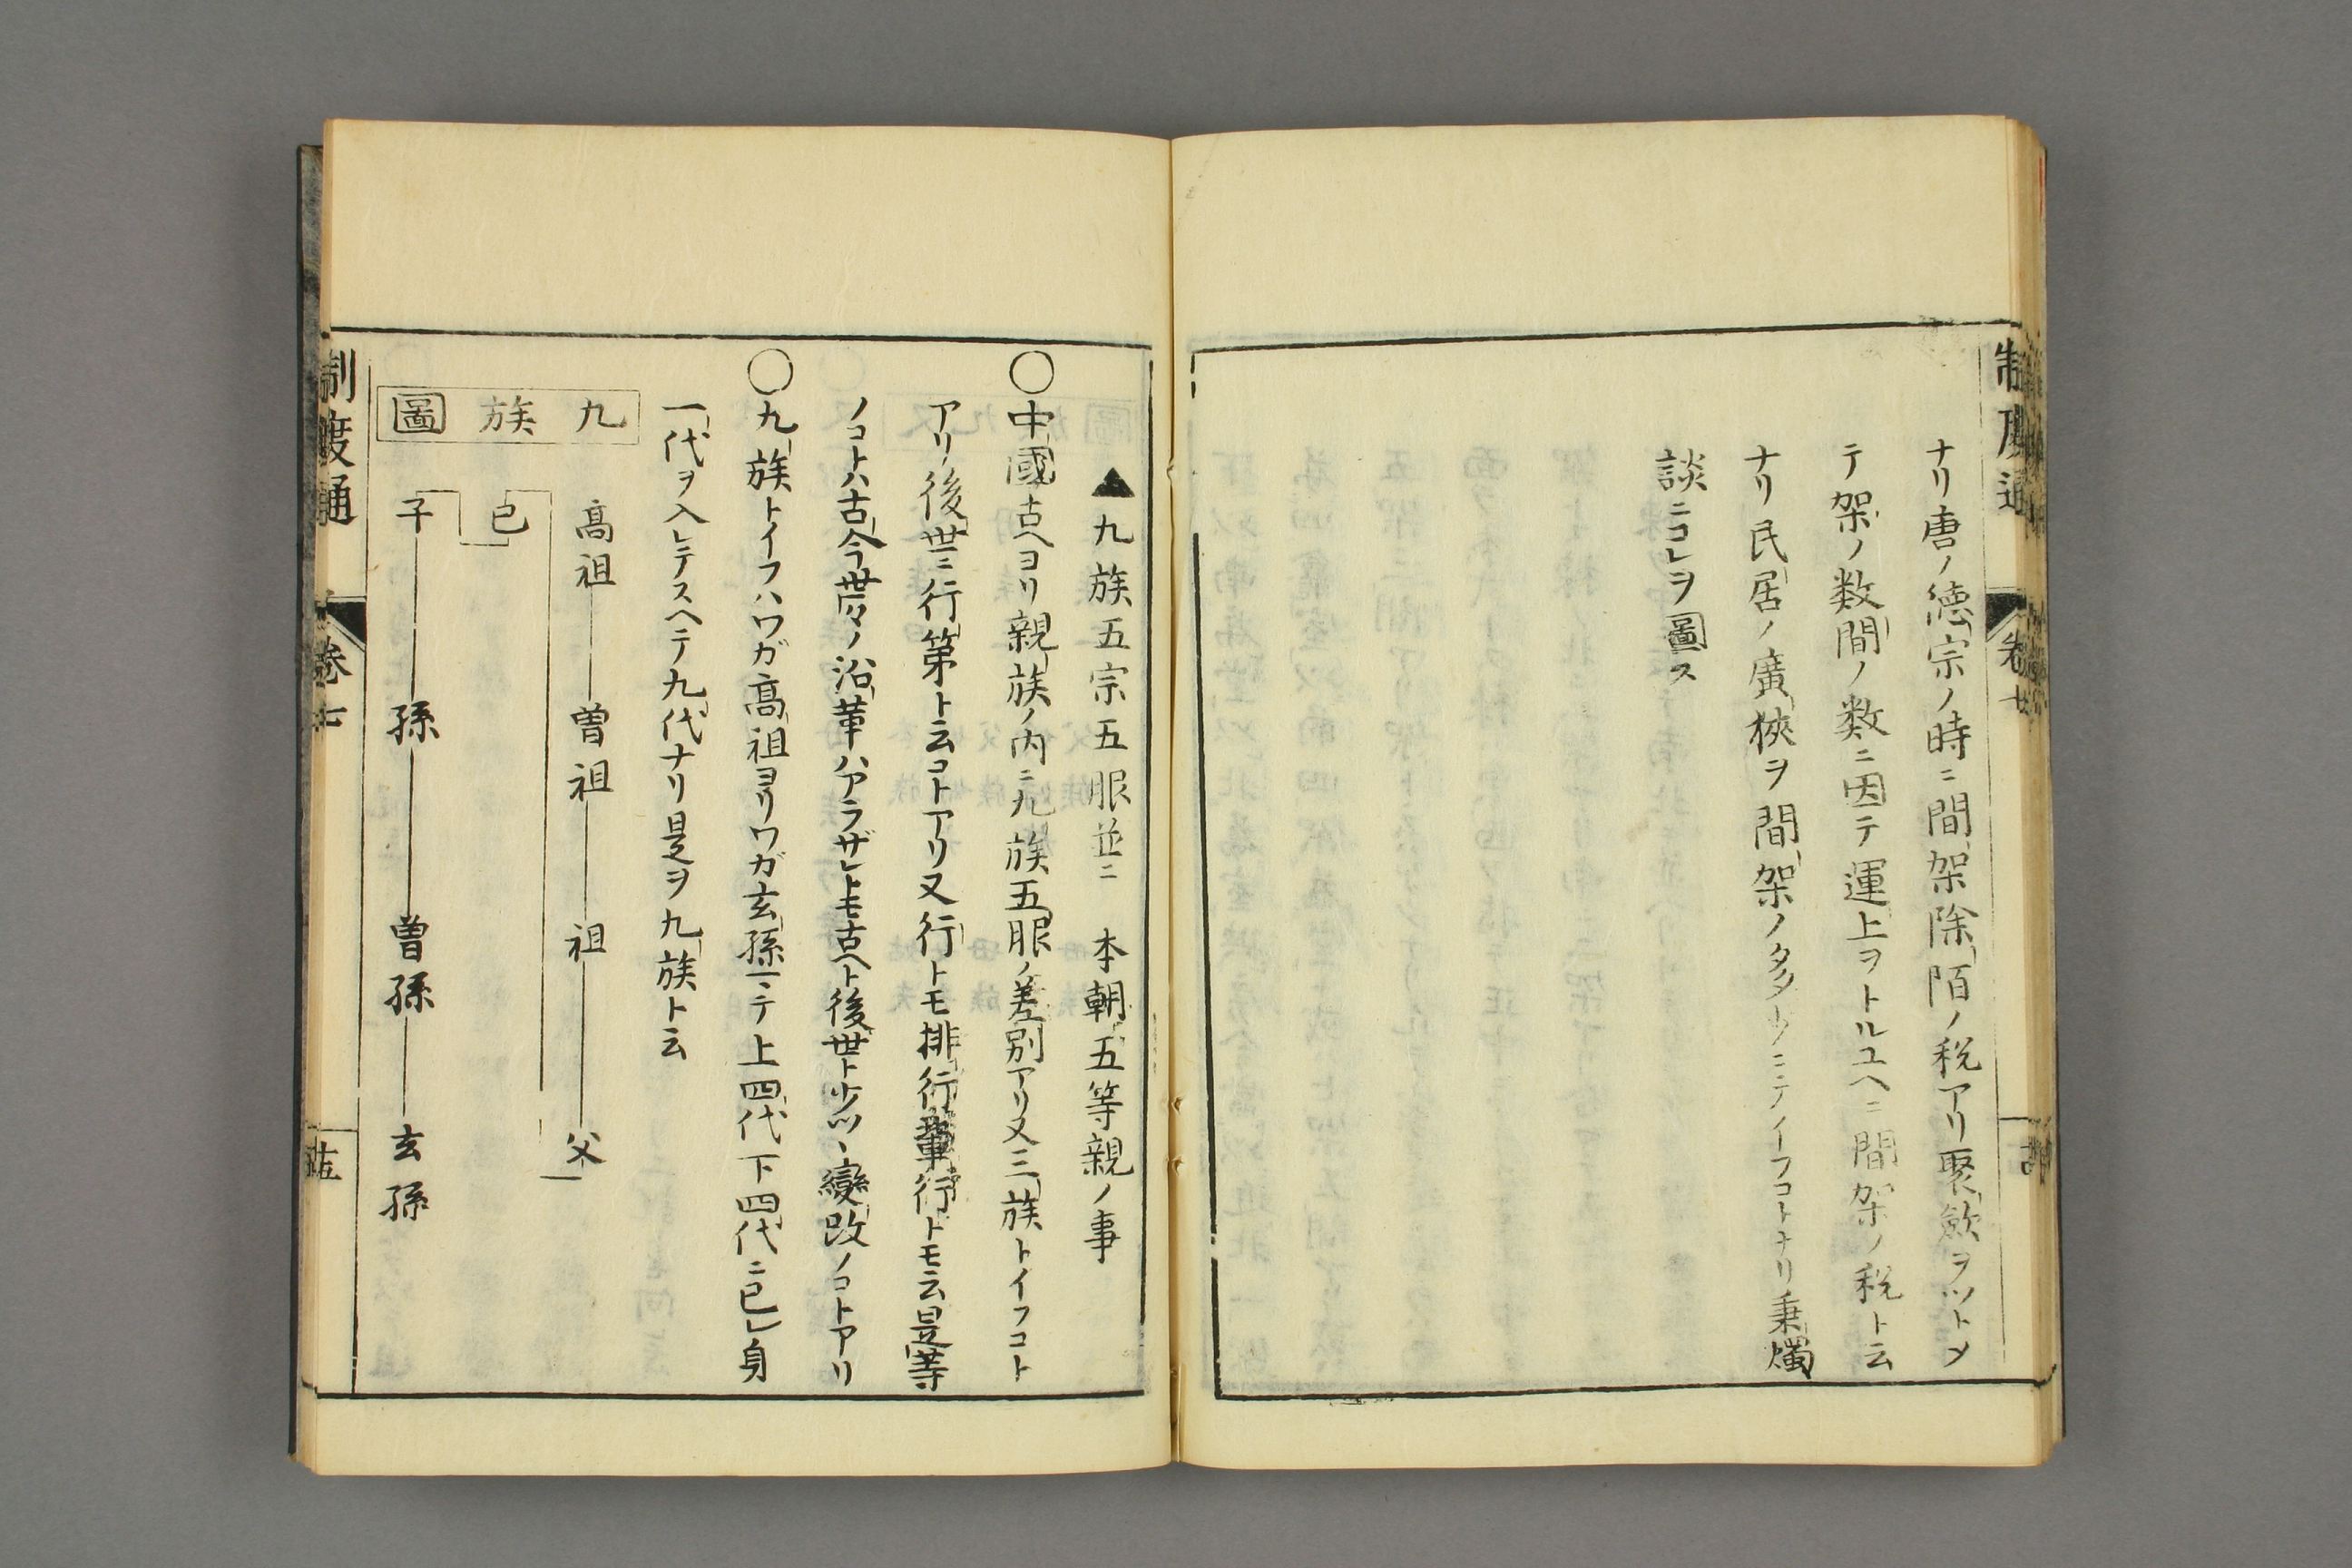 ナリ唐ノ德宗ノ時ニ間架除陌ノ税アリ聚斂ヲツトメ
テ架ノ数間ノ数ニ因テ運上ヲトルユヘニ間架ノ税ト云
ナリ民居ノ廣狹ヲ間架ノ多少ニテイフコトナリ秉燭
談ニコレヲ圖ス
▲九族五宗五服並ニ 本朝五等親ノ事
○中國古ヘヨリ親族ノ内ニ九族五服ノ差別アリ又三族トイフコト
アリ後世ニ行第ト云コトアリ又行トモ排行輩行トモ云是等
ノコトハ古今世々ノ沿革ハアラザレトモ古ヘト後世ト少ツヽ變改ノコトアリ
○九族トイフハワガ高祖ヨリワガ玄孫マテ上四代下四代ニ己レ身
一代ヲ入レテスヘテ九代ナリ是ヲ九族ト云
九族圖
高祖 曽祖 祖 父
己
子 孫 曽孫 玄孫
制度通 卷七 十五